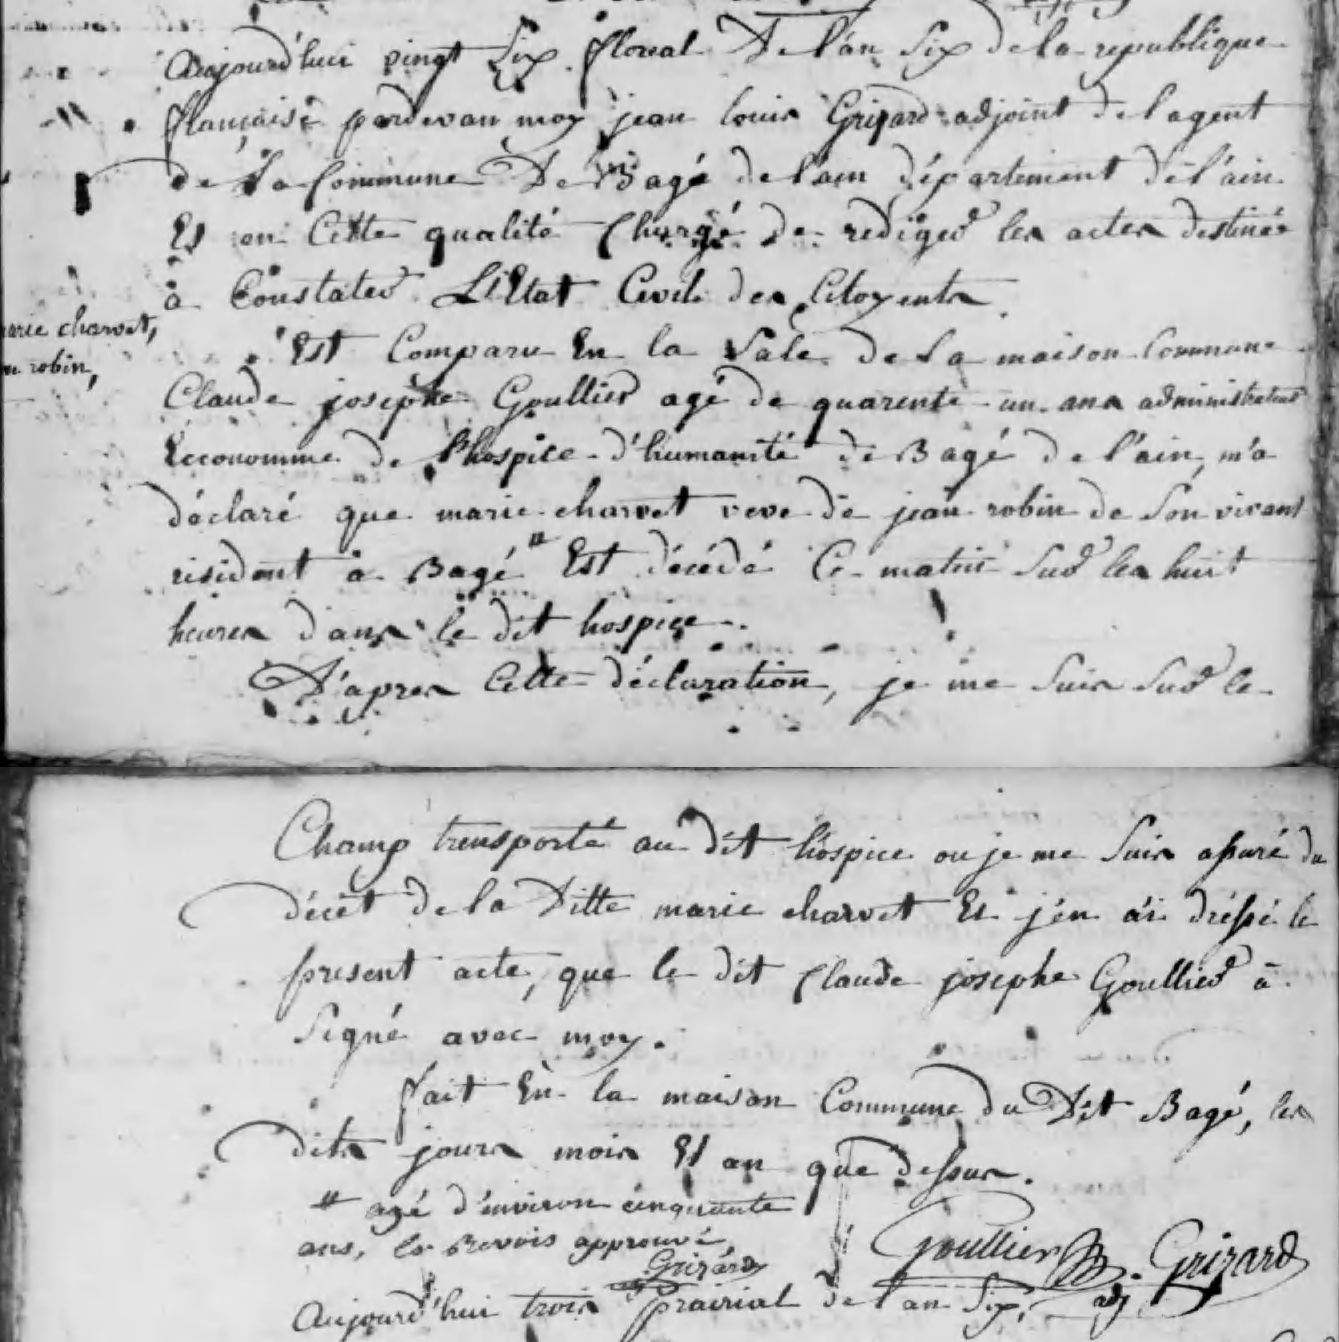 aujourd'hui vingt six floreal De l'an six de la republique
francaise pardevan moy jean louis Grizard adjoint de l'agent
de la Commune De Bagé de l'ain département de l'ain
Et en Cette qualité Chargé de rediger les actes destinés
à Constater L'Etat Civil des Citoyents
arie charvet,
robin,
Est Comparu En la Sale de la maison Commune
Claude josephe Goullier agé de quarente un ans administrateur
Ecconomme de l'hospice d'humanité de Bagé de l'ain, m'a
déclaré que marie charvet veve de jean robin de Son vivant
resident a Bagé # Est décédé Ce matin Sur les huit
heures dans le dit hospice.
D'apres Cette déclaration, je me Suis Sur le
Champ transporté au dit hospice ou je me Suis assuré du
décet de la Ditte marie charvet Et j'en ai dressé le
present acte, que le dit Claude josephe Goullier à
Signé avec moy.
fait En la maison Commune du Dit Bagé, les
dits jours mois Et an que dessus.
# agé d'environ cinquante
ans, le Renvois approuvé
Grizard
Goullier Grizard
adj
Aujourd'hui trois prairial de l'an Six,